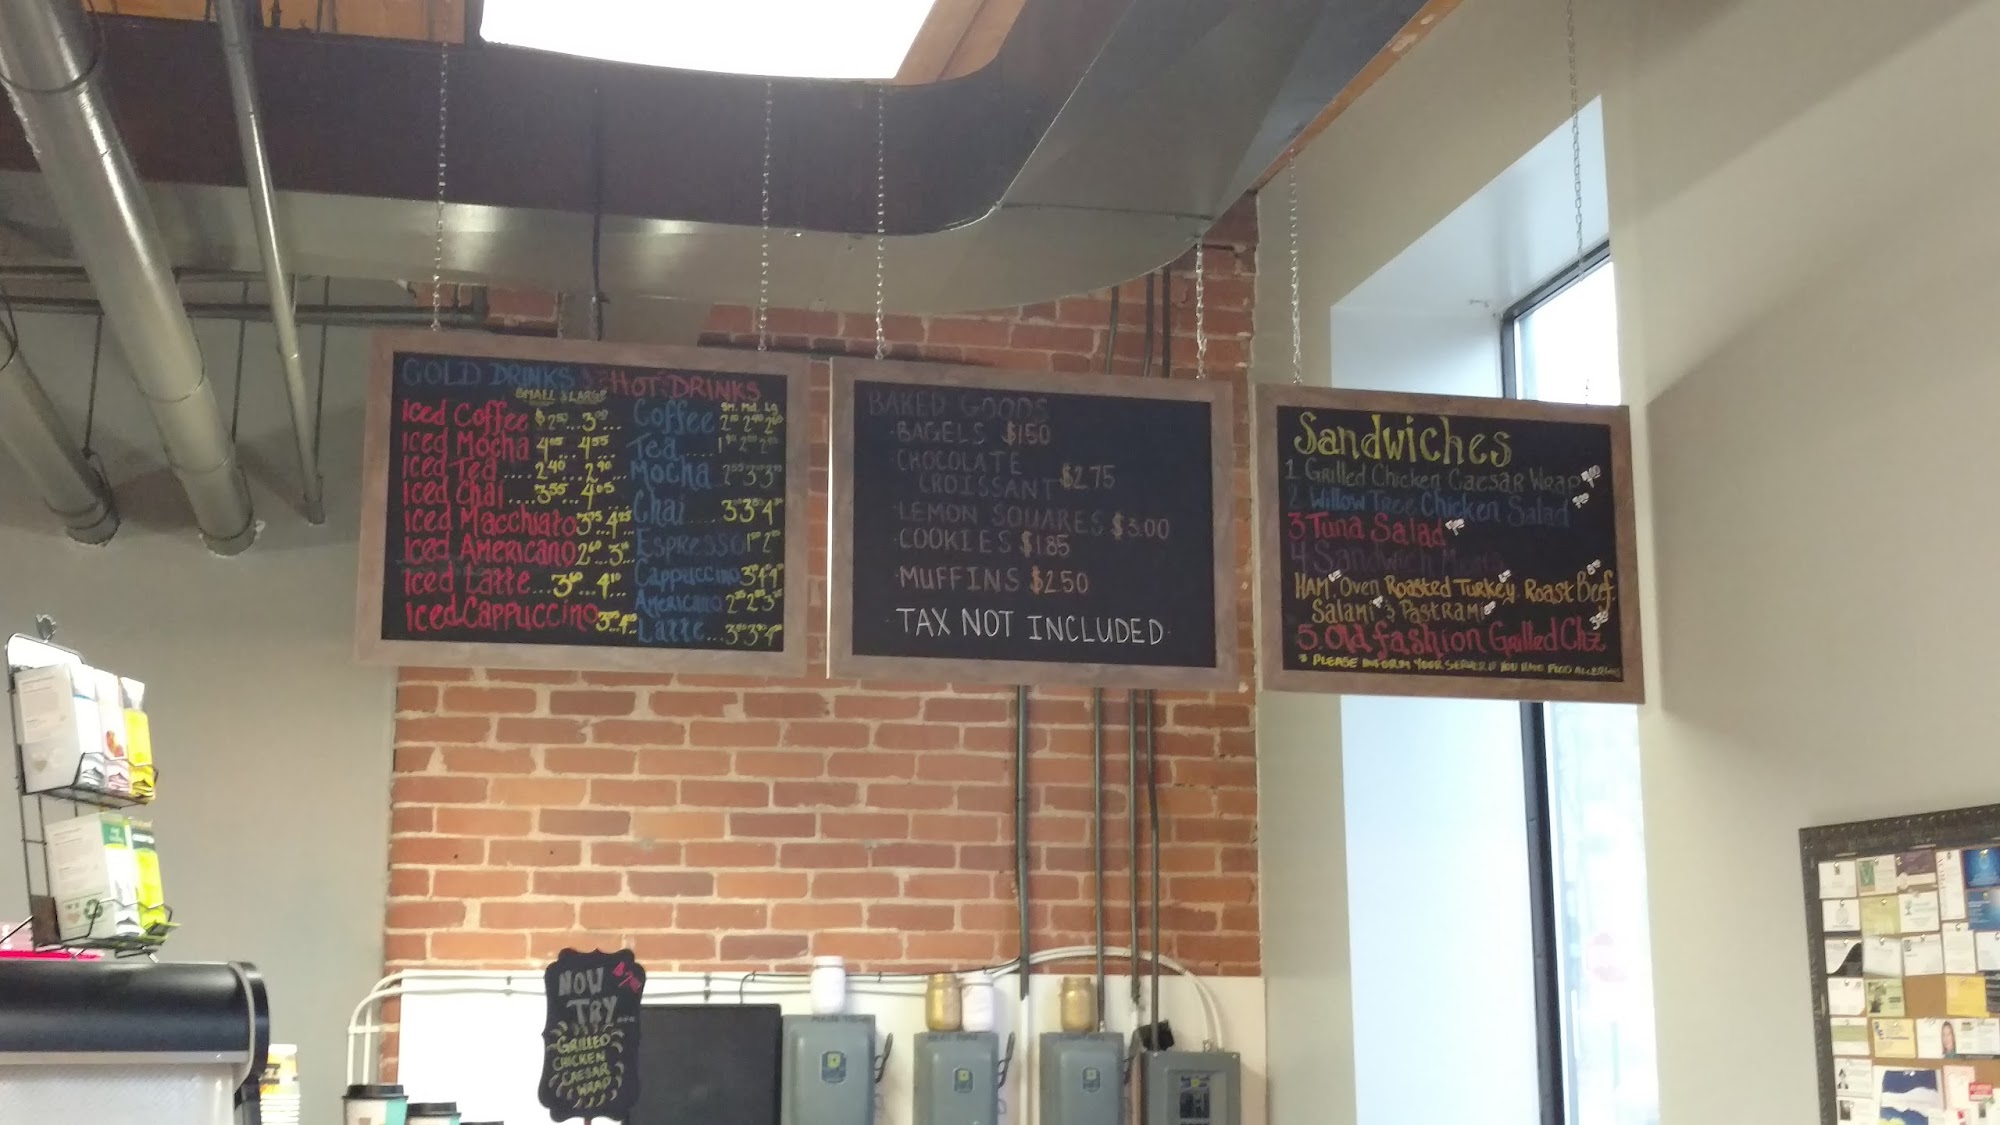 COLD DRINKS & HOT DRINKS
SMALL & LARGE
Iced Coffee $2.50...3.00...
Iced Mocha 4.05...4.55
Iced Tea....2.40...2.90
Iced Chai....3.55...4.05
Iced Macchiato 3.75...4.25
Iced Americano 2.60...3.10...
Iced Latte...3.60...4.10
Iced Cappuccino
Sm. Md. Lg
Coffee
Tea....
Mocha
Chai....
Espresso
Cappuccino
Americano
Latte...
BAKED GOODS
·BAGELS $1.50
·CHOCOLATE
CROISSANT $2.75
·LEMON SQUARES $3.00
·COOKIES $1.85
·MUFFINS $2.50
·TAX NOT INCLUDED·
Sandwiches
1 Grilled Chicken Caesar Wrap
2 Willow Tree Chicken Salad
3 Tuna Salad
4 Sandwich
HAM, Oven Roasted Turkey, Roast Beef,
Salami & Pastrami
5. Old fashion Grilled Chz
* PLEASE INFORM YOUR SERVER IF YOU HAVE FOOD ALLERGIES
NOW
TRY...
GRILLED
CHICKEN
CAESAR
WRAP